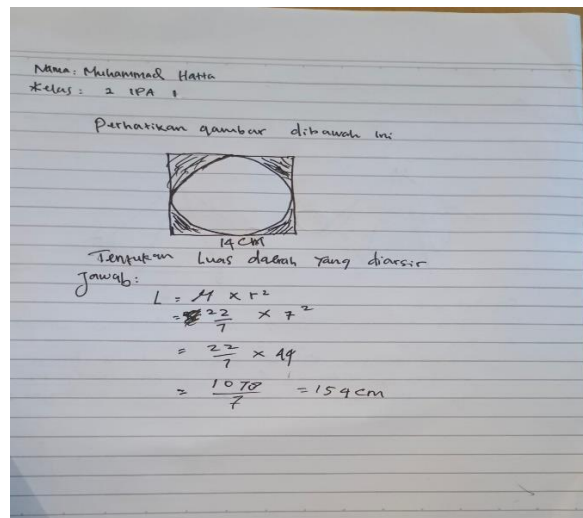 Nama: Muhammad Hatta
Kelas: 2 IPA 1
Perhatikan gambar dibawah ini
14 CM
Tentukan Luas daerah yang diarsir
Jawab:
L = π x r²
= 22/7 x 7²
= 22/7 x 49
= 1078/7 = 154 cm